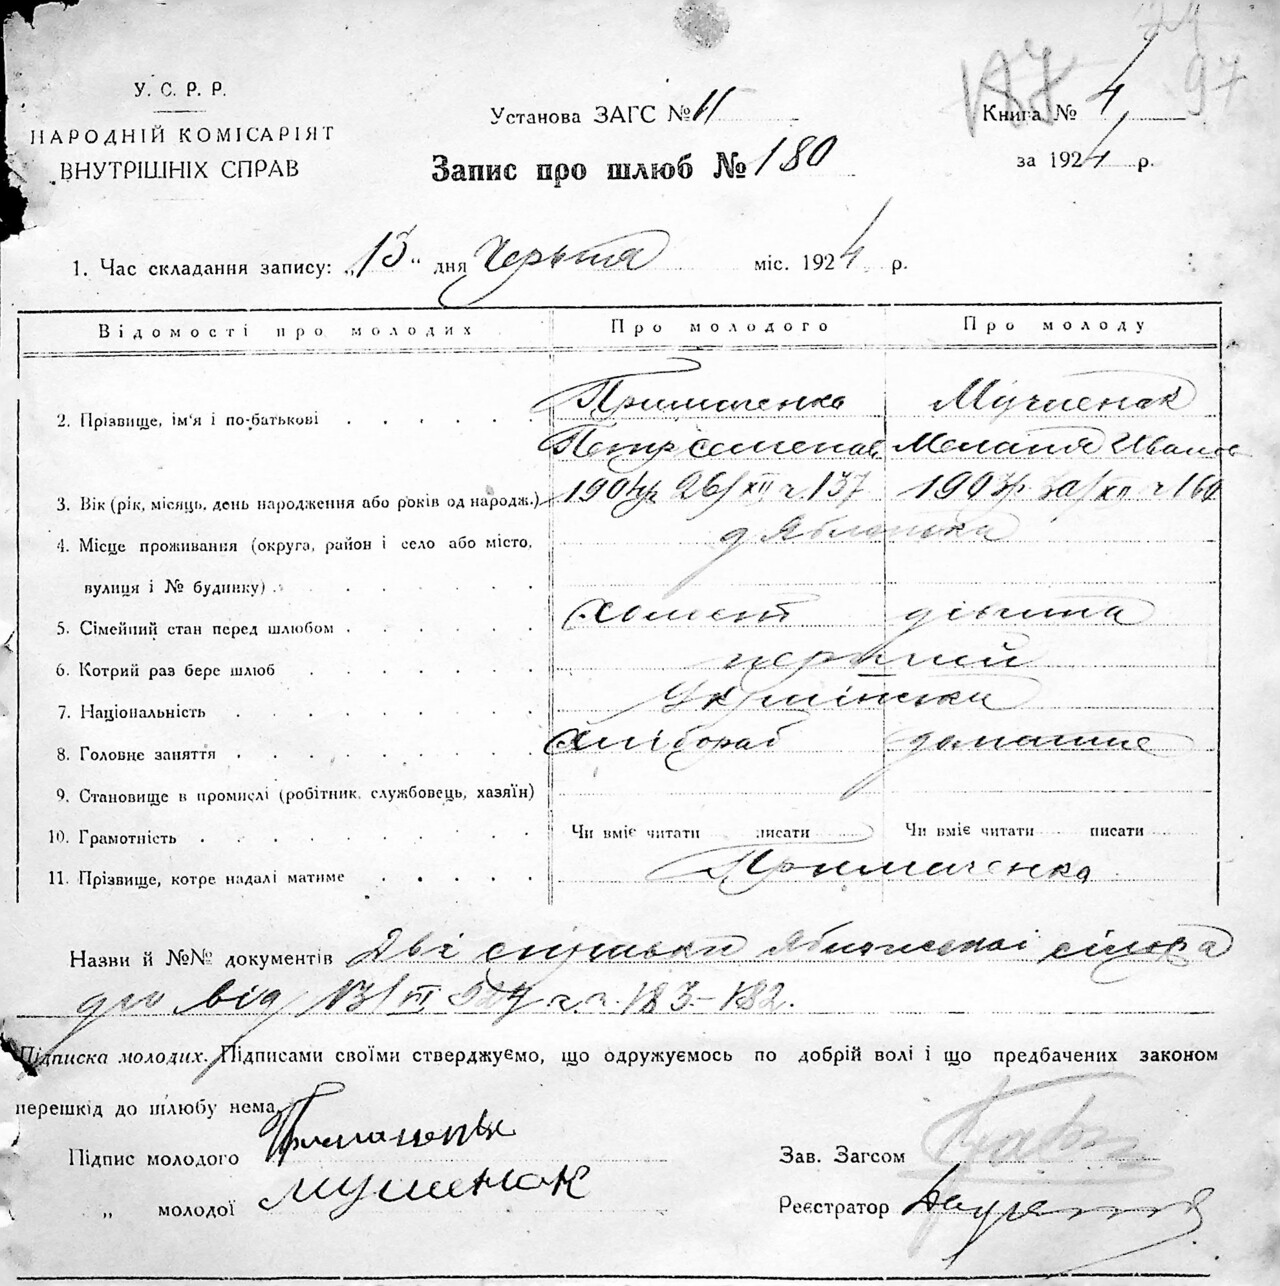 187 97
У. С. Р. Р.
НАРОДНІЙ КОМІСАРІЯТ
ВНУТРІШНІХ СПРАВ
Установа ЗАГС № 11
Запис про шлюб № 180
Книга № 4
за 1924 р.
1. Час складання запису: „13“ дня Червня міс. 1924 р.
Відомості про молодих Про молодого Про молоду
2. Прізвище, ім'я і по-батькові Примаченко Мусиенок
Петр Семенов Мелания Иванов
3. Вік (рік, місяць, день народження або років од народж.) 1904 р. 26/XII ч. 137 1903 р. /XII ч 160
4. Місце проживання (округа, район і село або місто, д Яблонька
вулиця і № будинку)
5. Сімейний стан перед шлюбом холост дівчина
6. Котрий раз бере шлюб первий
7. Національність Українськи
8. Головне заняття хлібороб домашнє
9. Становище в промислі (робітник, службовець, хазяїн)
10. Грамотність Чи вміє читати писати Чи вміє читати писати
11. Прізвище, котре надалі матиме Примаченко
Назви й №№ документів Дві справки сілура
дю від 13/VI 924 ч. ч. 183-182.
Підписка молодих. Підписами своїми стверджуємо, що одружуємось по добрій волі і що предбачених законом
перешкід до шлюбу нема.
Підпис молодого Примаченко
„ молодої Мусиенок
Зав. Загсом
Реєстратор